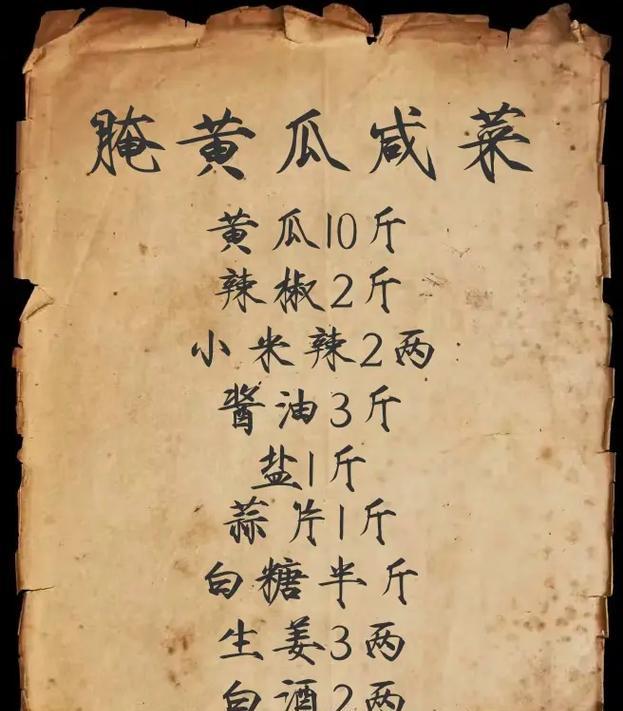 腌黄瓜咸菜
黄瓜10斤
辣椒2斤
小米辣2两
酱油3斤
盐1斤
蒜片1斤
白糖半斤
生姜3两
白酒2两